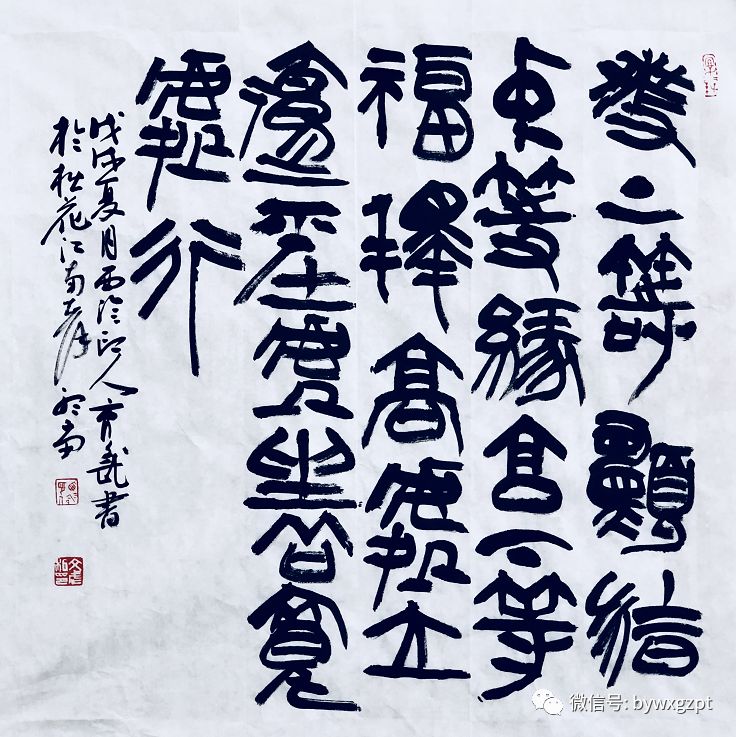 發上等願結
中等緣享下等
福擇高處立
平處坐向寬
處行
戊戌夏月西泠印人書
於松花江南岸
微信号: bywxgzpt